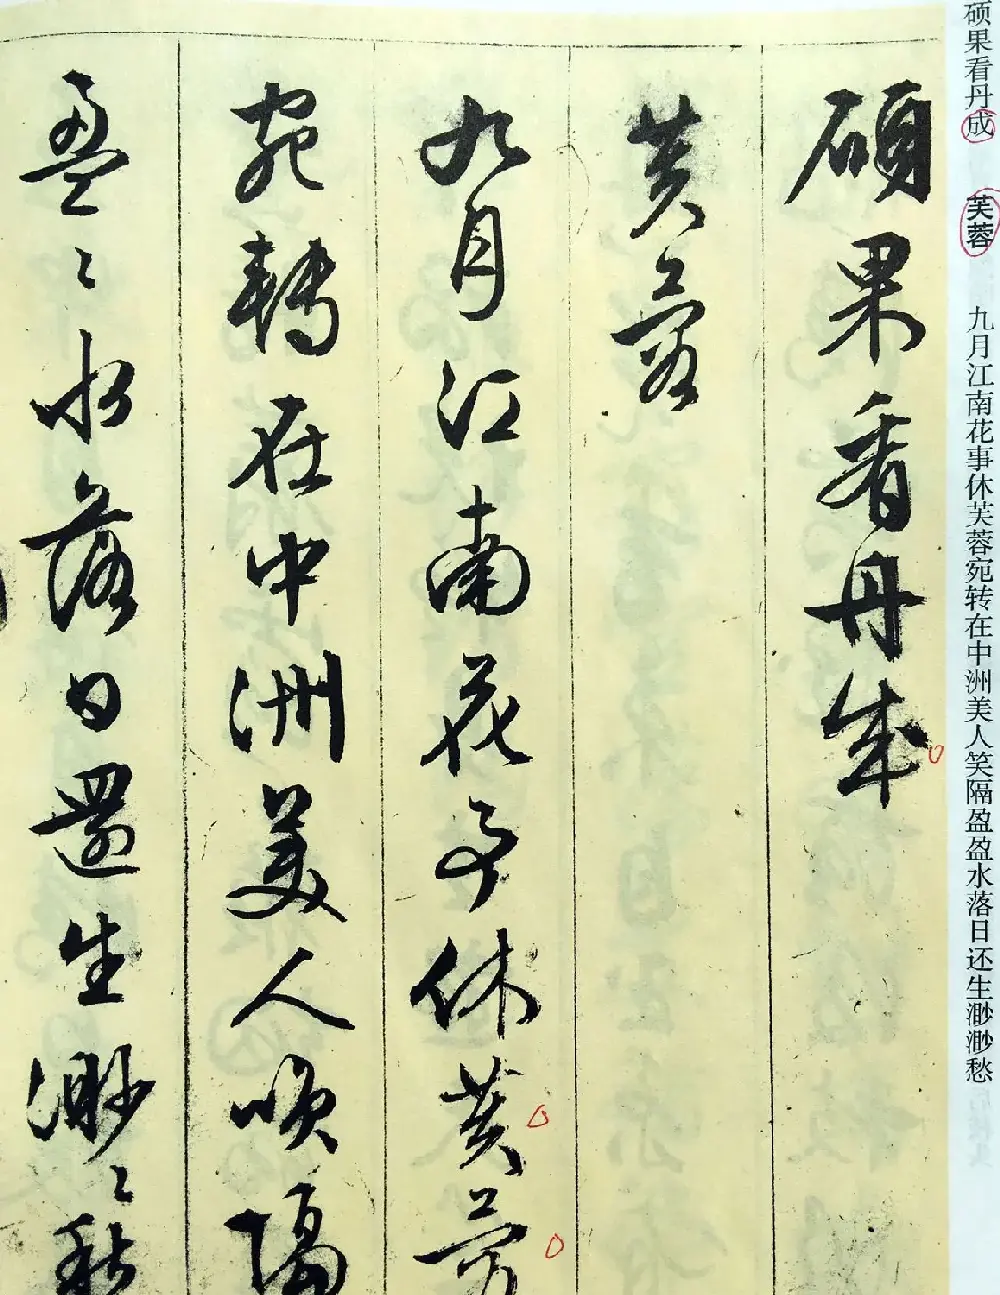 硕果看丹成 芙蓉 九月江南花事休芙蓉宛转在中洲美人笑隔盈盈水落日还生渺渺愁
碩果看丹成
芙蓉
九月江南花事休芙蓉
宛轉在中洲美人咲隔
盈〻水落日還生渺〻